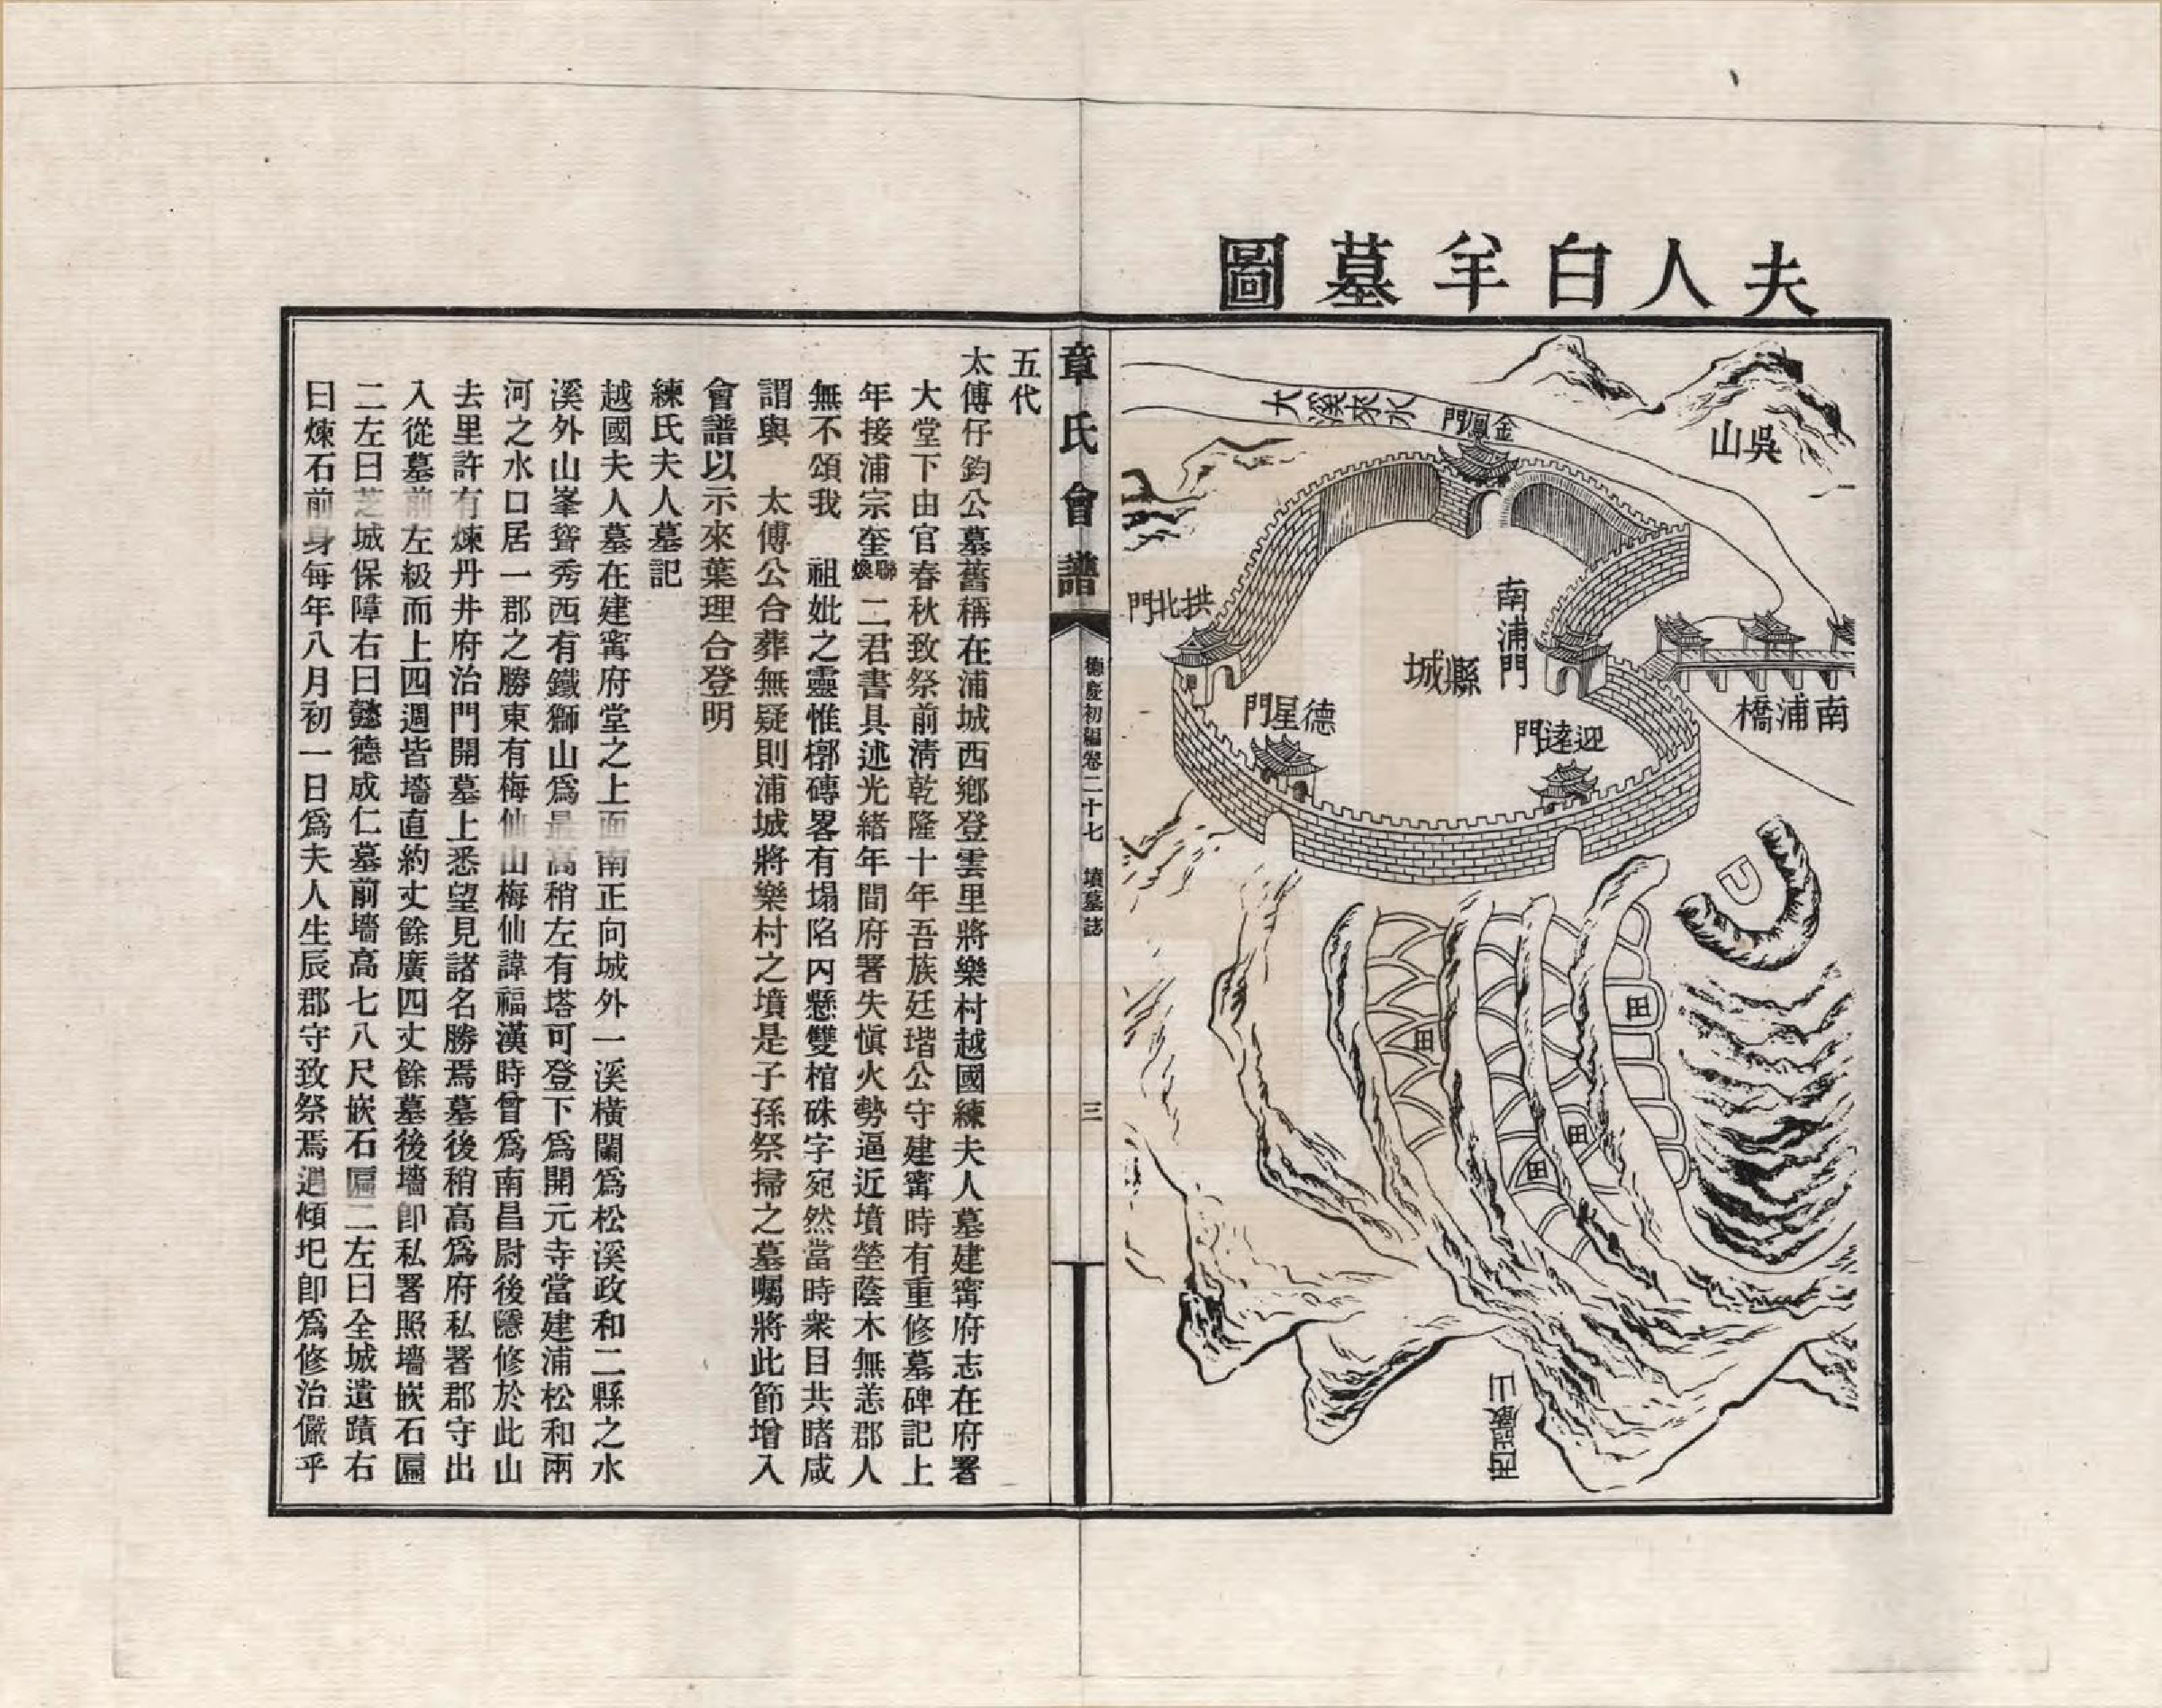 夫人白羊墓圖
吳山
大溪來水
金鳳門
拱北門
南浦門
縣城
德星門
迎逵門
南浦橋
田
田
田
田
西巖山
章氏會譜
德慶初編卷二十七 墳墓誌
三
五代
太傅仔鈞公墓舊稱在浦城西鄉登雲里將樂村越國練夫人墓建寗府志在府署
大堂下由官春秋致祭前清乾隆十年吾族廷瑎公守建寗時有重修墓碑記上
年接浦宗奎聯煥二君書具述光緒年間府署失愼火勢逼近墳塋蔭木無恙郡人
無不頌我 祖妣之靈惟槨磚畧有塌陷內懸雙棺硃字宛然當時衆目共睹咸
謂與 太傅公合葬無疑則浦城將樂村之墳是子孫祭掃之墓囑將此節增入
會譜以示來葉理合登明
練氏夫人墓記
越國夫人墓在建寗府堂之上面南正向城外一溪橫闌爲松溪政和二縣之水
溪外山峯聳秀西有鐵獅山爲最高稍左有塔可登下爲開元寺當建浦松和兩
河之水口居一郡之勝東有梅仙山梅仙諱福漢時曾爲南昌尉後隱修於此山
去里許有煉丹井府治門開墓上悉望見諸名勝焉墓後稍高爲府私署郡守出
入從墓前左級而上四週皆墻直約丈餘廣四丈餘墓後墻卽私署照墻嵌石匾
二左曰芝城保障右曰懿德成仁墓前墻高七八尺嵌石匾二左曰全城遺蹟右
曰煉石前身每年八月初一日爲夫人生辰郡守致祭焉遇傾圯卽爲修治儼乎